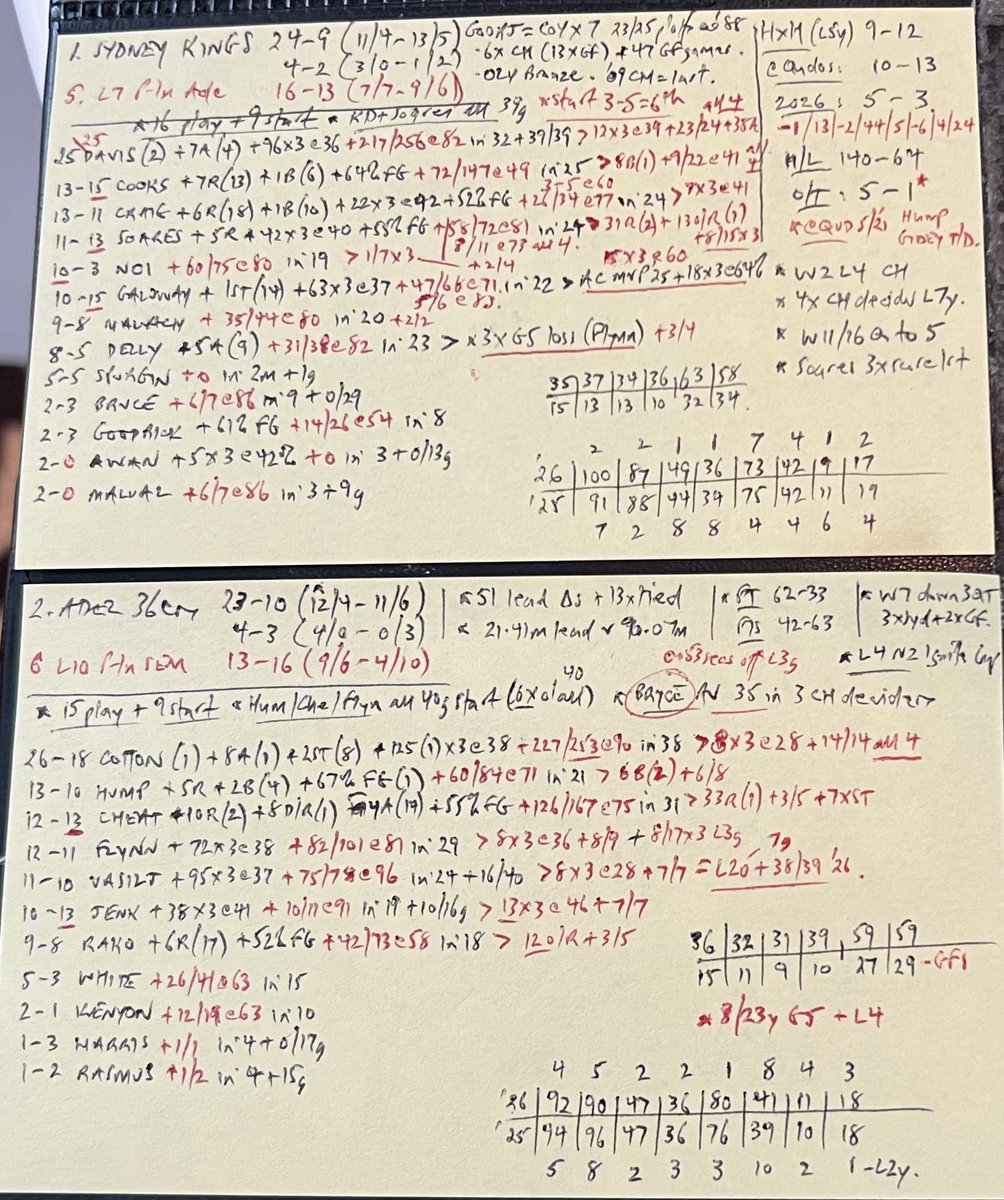 1. SYDNEY KINGS 24-9 (11/4-13/5) GOORJ = COY x 7 23/25 p/offs as 88
4-2 (3/0-1/2) · 6x CH (13xGF) + 47 GF games.
· OLY Bronze · '09 CM = last.
5. L7 P-In Ade 16-13 (7/7-9/6)
* 16 play + 9 start * KD + Soares all 39g * start 3-5 = 6th
25 DAVIS (2) + 7A (4) + 96x3e36 + 217/256e82 in 32 + 39/39 > 12x3e39 + 23/24 + 35A
13-15 COOKS + 7R (13) + 1B (6) + 64% FG + 72/147e49 in 25 > 8B (1) + 9/22e41
13-11 CRAIG + 6R (18) + 1B (10) + 22x3e42 + 52% FG + 26/34e77 in 24 > 7x3e41
3-5e60
11-13 SOARES + 5R + 42x3e40 + 55% FG + 58/72e81 in 24 > 31R (2) + 13O/R (1)
8/11e73 all 4. + 8/15x3
10-3 NOI + 60/75e80 in 19 > 1/7x3 + 2/4
15x3e60
10-15 GALLOWAY + 1ST (14) + 63x3e37 + 47/66e71 in 22 > AC MVP 25 + 18x3e64%
5/6e83.
9-8 + 35/44e80 in 20 + 2/2
8-5 DELLY + 5A (9) + 31/38e82 in 23 > * 3x G5 loss (Flynn) + 3/4
5-5 SPURGIN + 0 in 2m + 1g
2-3 BRUCE + 6/7e86 in 9 + 0/29
2-3 GOODRICK + 61% FG + 14/26e54 in 8
2-0 AWAN + 5x3e42% + 0 in 3 + 0/13g
2-0 MALUAL + 6/7e86 in 3 + 9g
HxH (LSy) 9-12
e Qudos: 10-13
2026: 5-3
-1/13/-2/44/5/-6/4/24
H/L 140-64
O/T: 5-1*
* eQUD 5/21 Hump
GIDEY T/D.
* W2 L4 CH
* 4x CH decider L7y.
* W11/16 Q to 5
* Soares 3x save 1st
35|37|34|36|63|58
15|13|13|10|32|34
2 2 1 1 7 4 1 2
26|100|87|49|36|73|42|9|17
'25|91|88|44|34|75|42|11|19
7 2 8 8 4 4 6 4
2. ADEL 36ers 23-10 (12/4-11/6)
4-3 (4/0-0/3)
6 L10 P-In SEM 13-16 (9/6-4/10)
* 51 lead Δs + 13x tied
* 21.41m lead v 90.07m
* PT 62-33
AS 42-63
* W7 down 3QT
3xSyd + 2xGF.
* 15 play + 9 start * Hum/Che/Flyn all 40g start (6x all) * BRYCE AV 35 in 3 CH deciders
26-18 COTTON (1) + 8A (1) + 2ST (8) + 125 (1) x3e38 + 227/253e90 in 38 > 8x3e28 + 14/14 all 4
13-10 HUMP + 5R + 2B (4) + 67% FG (1) + 60/84e71 in 21 > 6B (2) + 6/8
12-13 CHEAT + 10R (2) + 8D/R (1) + 4A (17) + 55% FG + 126/167e75 in 31 > 33R (1) + 3/5 + 7xST
12-11 FLYNN + 72x3e38 + 82/101e81 in 29 > 8x3e36 + 8/9 + 8/17x3 L3g
11-10 VASILJ + 95x3e37 + 75/78e96 in 24 + 16/40 > 8x3e28 + 7/7 = L20 + 38/39 '26.
10-13 JENK + 38x3e41 + 10/11e91 in 19 + 10/16g > 13x3e46 + 7/7
9-8 RAKO + 6R (17) + 52% FG + 42/73e58 in 18 > 12O/R + 3/5
5-3 WHITE + 26/41e63 in 15
2-1 KENYON + 12/19e63 in 10
1-3 HARRIS + 1/1 in 4 + 0/17g
1-2 RASMUS + 1/2 in 4 + 15g
36|32|31|39|59|59
15|11|9|10|27|29 - GF1
* 8/23y G5 + L4
4 5 2 2 1 8 4 3
'26|92|90|47|36|80|41|11|18
'25|94|96|47|36|76|39|10|18
5 8 2 3 3 10 2 1 - L2y.